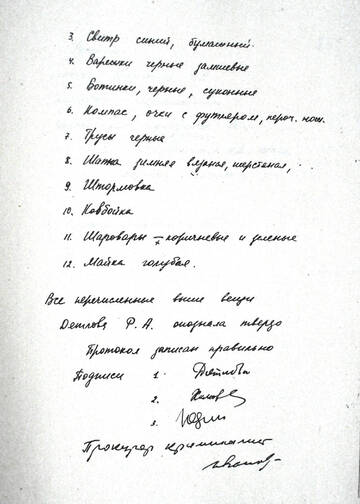 3. Свитр синий, бумажный.
4. Варежки черные замшевые
5. Ботинки, черные, суконные
6. Компас, очки с футляром, пероч. нож.
7. Трусы черные
8. Шапка зимняя вязаная, шерстяная,
9. Штормовка
10. Ковбойка
11. Шаровары – коричневые и зеленые
12. Майка голубая.
Все перечисленные выше вещи
Дятлова Р. А. опознала твердо
Протокол записан правильно
Подписи 1. Дятлова
2.
3. Юдин
Прокурор криминалист
Иванов